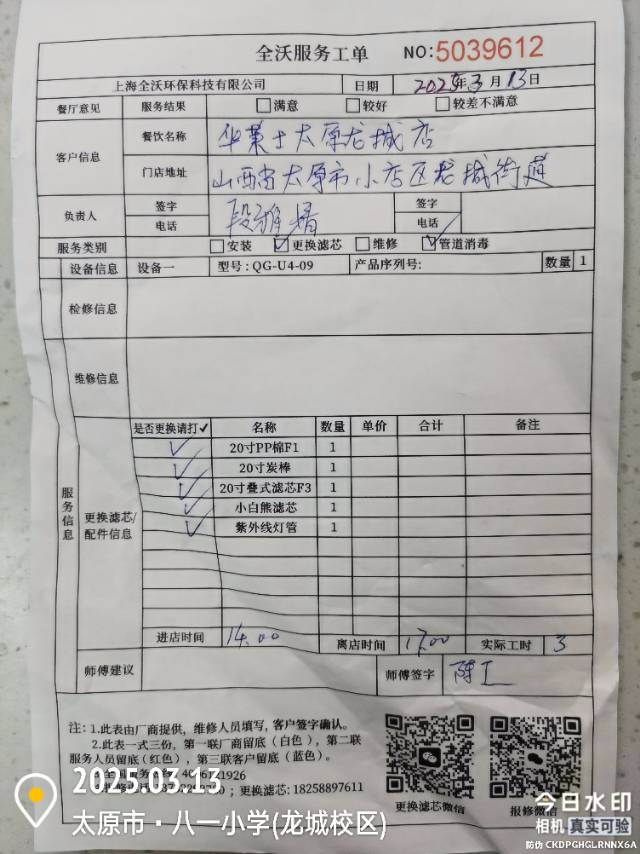 全沃服务工单 NO:5039612
上海全沃环保科技有限公司 日期 2025年3月13日
餐厅意见 服务结果 满意 较好 较差不满意
客户信息 餐饮名称 华莱士太原龙城店
门店地址 山西省太原市小店区龙城街道
负责人 签字 段雅婧 签字
电话 电话
服务类别 安装 ✓更换滤芯 维修 ✓管道消毒
设备信息 设备一 型号:QG-U4-09 产品序列号: 数量 1
检修信息
维修信息
服务信息
更换滤芯/配件信息
是否更换请打✓ 名称 数量 单价 合计 备注
✓ 20寸PP棉F1 1
✓ 20寸炭棒 1
✓ 20寸叠式滤芯F3 1
✓ 小白熊滤芯 1
✓ 紫外线灯管 1
进店时间 14.00 离店时间 17.00 实际工时 3
师傅建议 师傅签字 陈工
注:1.此表由厂商提供,维修人员填写,客户签字确认。
2.此表一式三份,第一联厂商留底(白色),第二联
服务人员留底(红色),第三联客户留底(蓝色)。
;更换滤芯:18258897611
更换滤芯微信 报修微信
2025.03.13
太原市·八一小学(龙城校区)
今日水印
相机 真实可验
防伪 CKDPGHGLRNNX6A